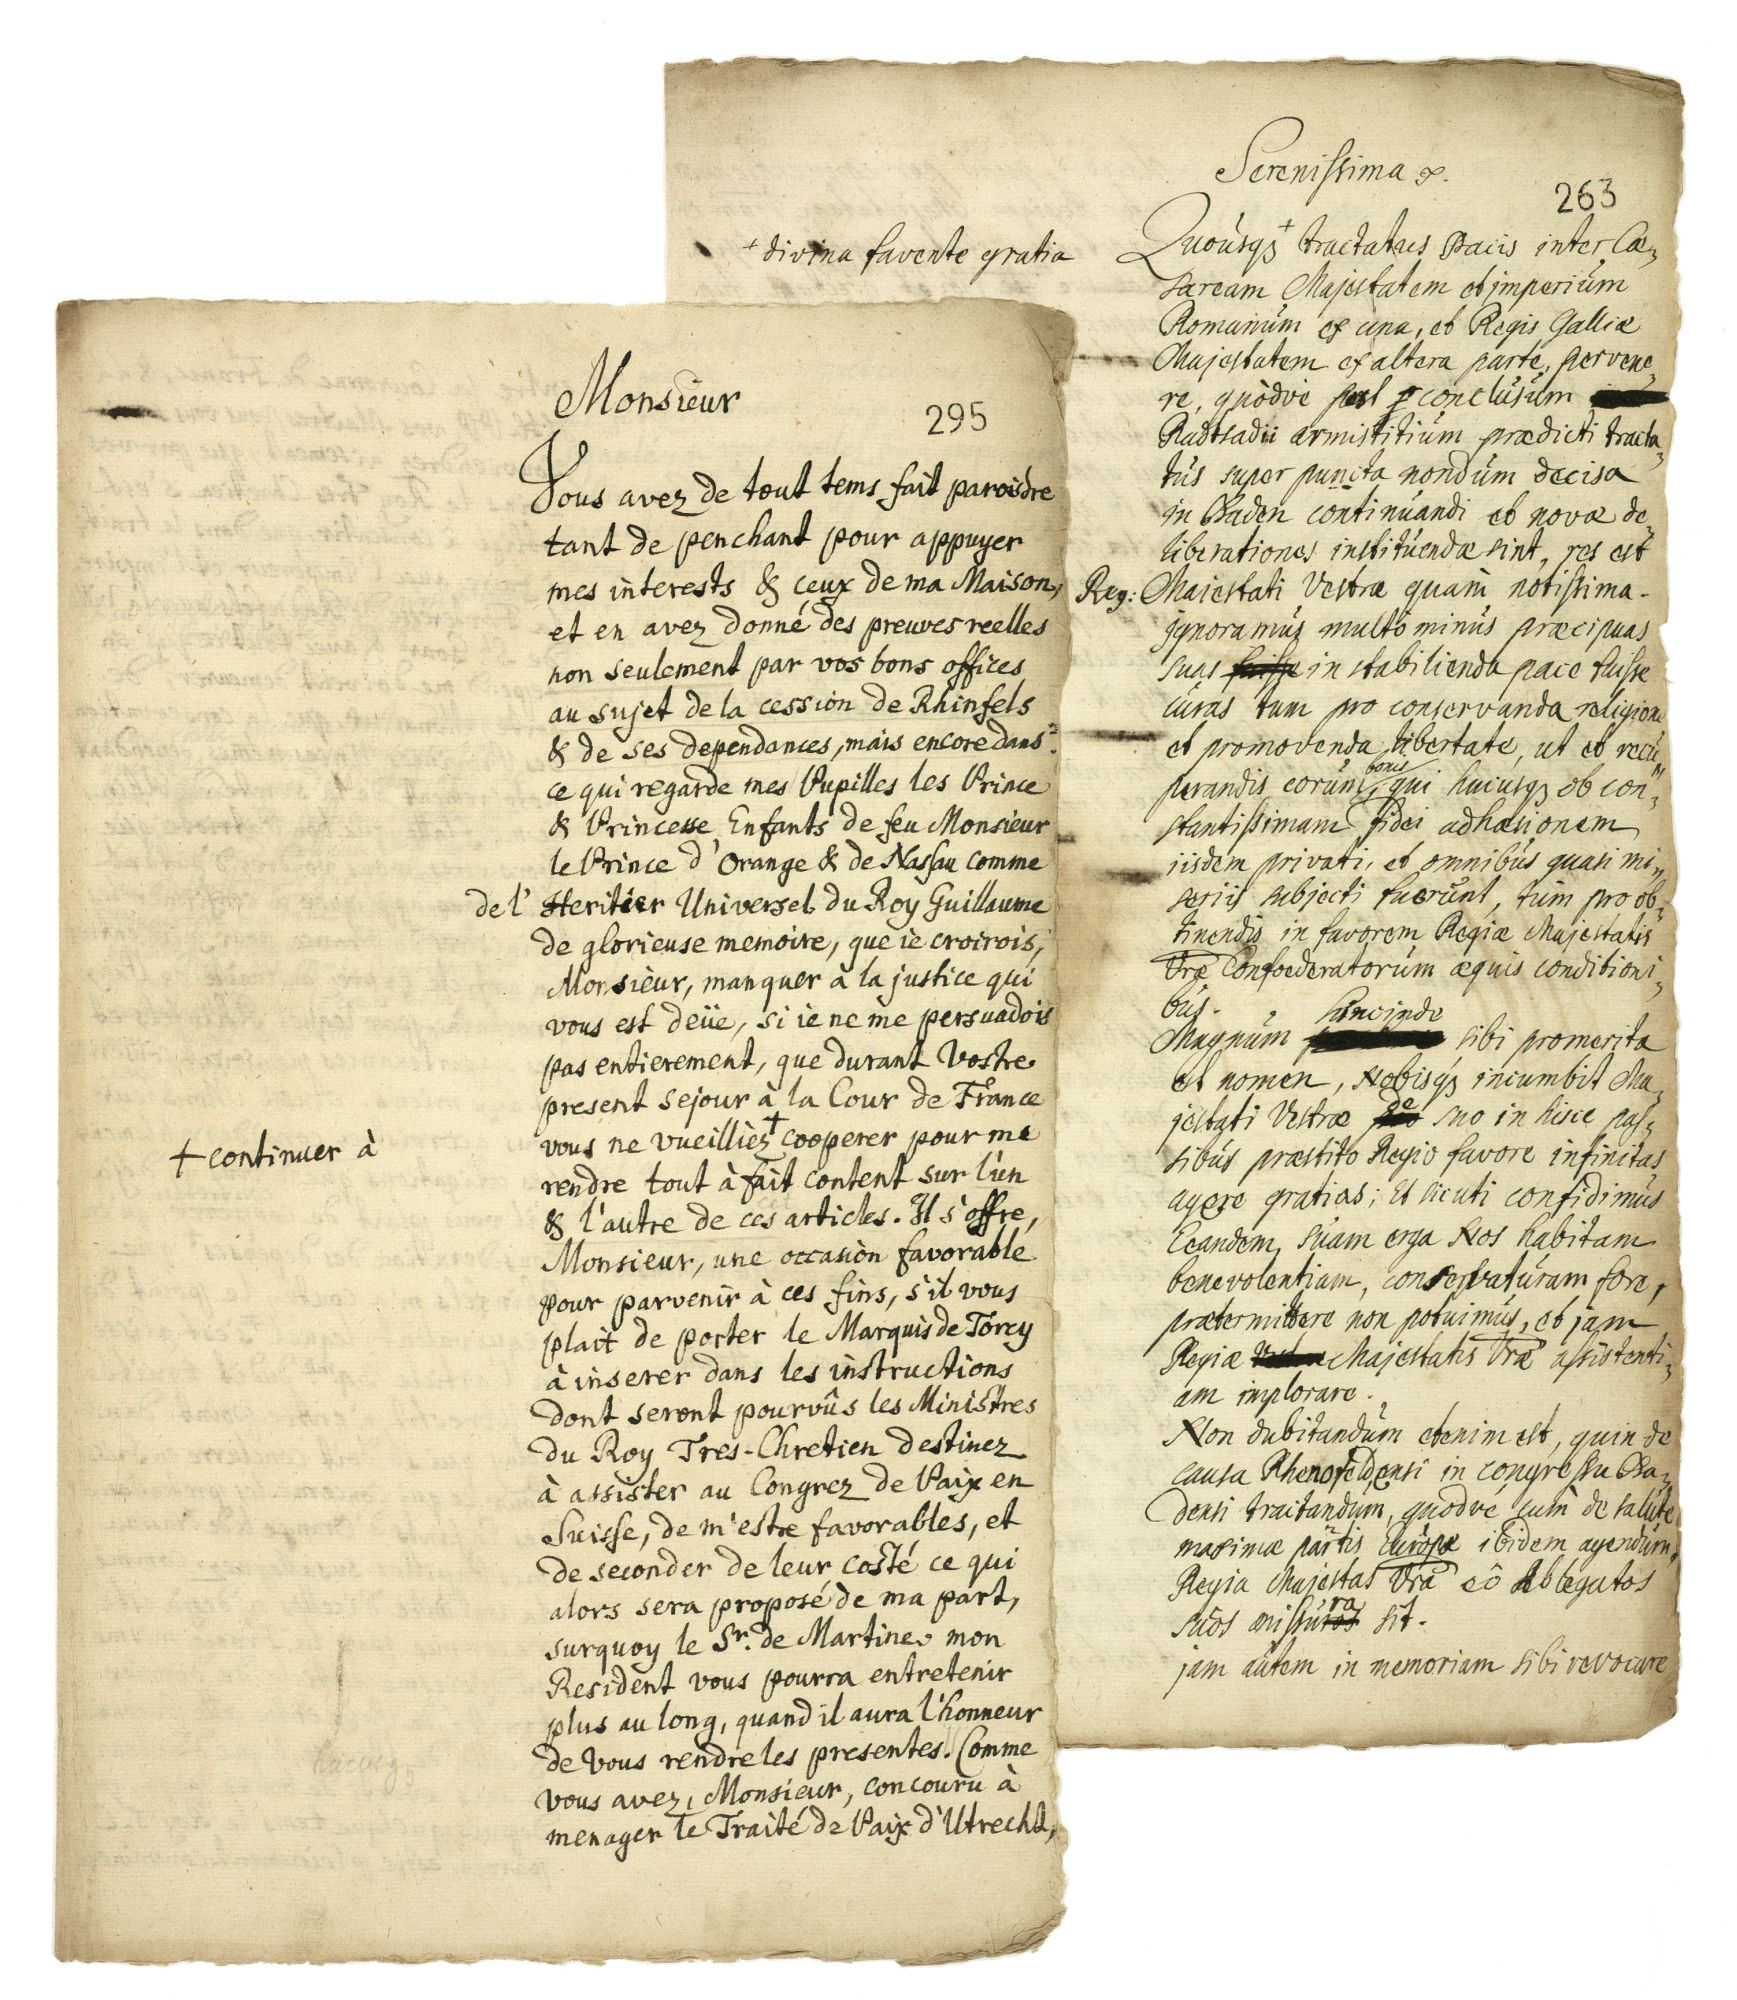 Monsieur
295
Vous avez de tout tems fait paroistre
tant de penchant pour appuyer
mes interests & ceux de ma Maison,
et en avez donné des preuves reelles
non seulement par vos bons offices
au sujet de la cession de Rhinfels
& de ses dependances, mais encore dans
ce qui regarde mes Pupilles les Prince
& Princesse Enfants de feu Monsieur
le Prince d'Orange & de Nassau comme
de l' Heritier Universel du Roy Guillaume
de glorieuse memoire, que ie croirois,
Monsieur, manquer à la justice qui
vous est deüe, si ie ne me persuadois
pas entierement, que durant Vostre
present sejour à la Cour de France
vous ne vueilliez + cooperer pour me
+ continuer à
rendre tout à fait content sur l'un
& l'autre de ces articles. Il s'offre,
Monsieur, une occasion favorable
pour parvenir à ces fins, s'il vous
plait de porter le Marquis de Torcy
à inserer dans les instructions
dont seront pourvûs les Ministres
du Roy Tres-Chretien destinez
à assister au Congrez de Paix en
Suisse, de m'estre favorables, et
de seconder de leur costé ce qui
alors sera proposé de ma part,
surquoy le Sr. de Martine mon
Resident vous pourra entretenir
plus au long, quand il aura l'honneur
de vous rendre les presentes. Comme
vous avez, Monsieur, concouru à
menager le Traité de Paix d'Utrecht,
Serenissima
263
Quousq3 + tractatus Pacis inter Cæ-
+ divina favente gratia
saream Majestatem et imperium
Romanum ex una, et Regis Galliæ
Majestatem ex altera parte, pervene-
re, quodve post conclusum
Radtsadii armistitium prædicti tracta-
tus super puncta nondum decisa
in Baden continuandi et novæ de-
liberationes instituendæ sint, res est
Reg: Majestati Vestræ quam notissima.
ignoramus multo minus præcipuas
suas fuisse in stabilienda pace fuisse
curas tum pro conservanda religione
et promovenda libertate, ut et recu-
perandis eorum bonis, qui hucusq3 ob con-
stantissimam fidei adhæsionem
iisdem privati, et omnibus quasi mi-
seriis subjecti fuerunt, tum pro ob-
tinendis in favorem Regiæ Majestatis
Vræ Confoederatorum æquis conditioni-
bus.
Magnum hincinde sibi promerita
est nomen, Nobisq3 incumbit Ma-
jestati Vestræ de suo in hisce pas-
sibus præstito Regio favore infinitas
agere gratias; Et sicuti confidimus
Eandem, suam erga Nos habitam
benevolentiam, conservaturam fore,
prætermittere non potuimus, et jam
Regiæ Majestatis Vræ assistenti-
am implorare.
Non dubitandum etenim est, quin de
causa Rhenofeldensi in congressu Ba-
densi tractandum, quodve, cum de salute
maximæ partis Europæ ibidem agendum,
Regia Majestas Vra eo Ablegatos
suos missura sit.
jam autem in memoriam sibi revocare